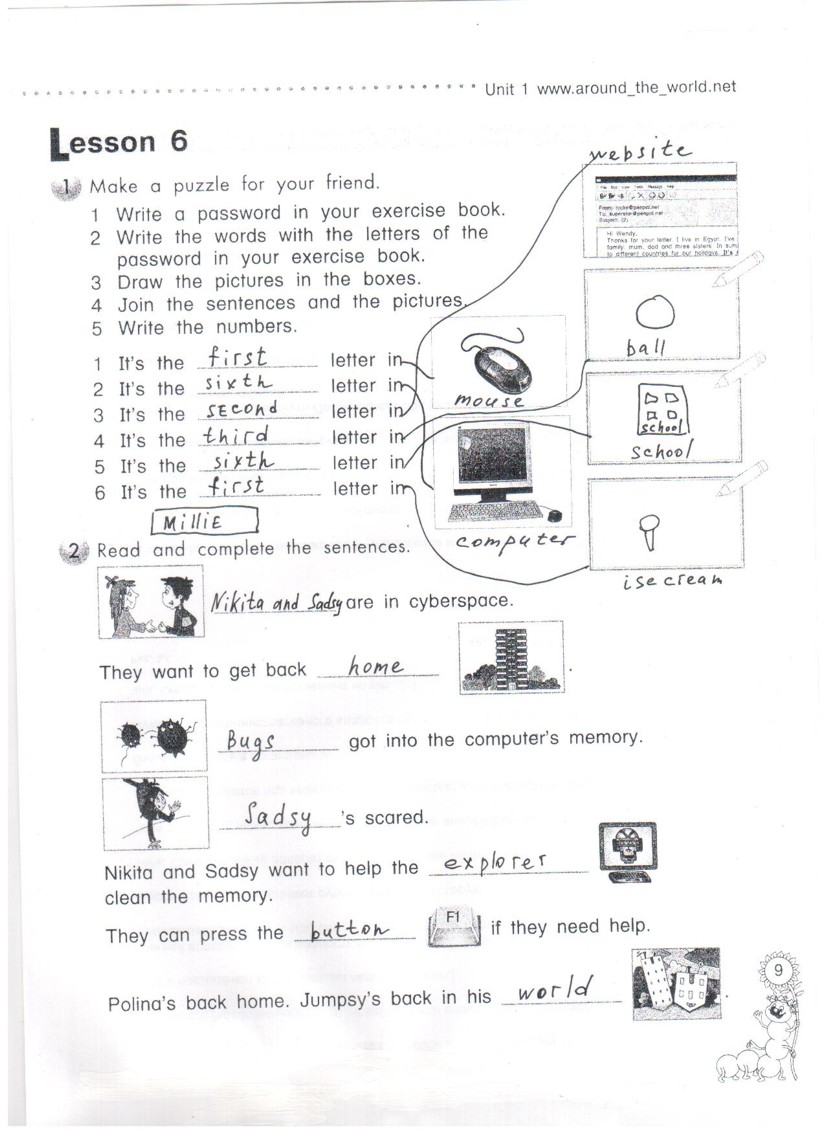 Unit 1 www.around_the_world.net
Lesson 6
1 Make a puzzle for your friend.
1 Write a password in your exercise book.
2 Write the words with the letters of the
password in your exercise book.
3 Draw the pictures in the boxes.
4 Join the sentences and the pictures.
5 Write the numbers.
1 It's the first letter in
2 It's the sixth letter in
3 It's the second letter in
4 It's the third letter in
5 It's the sixth letter in
6 It's the first letter in
MilliE
website
File Edit View Tools Message Help
Subject: (2)
Hi Wendy,
Thanks for your letter. I live in Egypt. I've
family: mum, dad and three sisters. In sum
to different countries for our holidays. It's
mouse
ball
school
school
computer
ise cream
2 Read and complete the sentences.
Nikita and Sadsy are in cyberspace.
They want to get back home.
Bugs got into the computer's memory.
Sadsy's scared.
Nikita and Sadsy want to help the explorer
clean the memory.
They can press the button F1 if they need help.
Polina's back home. Jumpsy's back in his world.
9